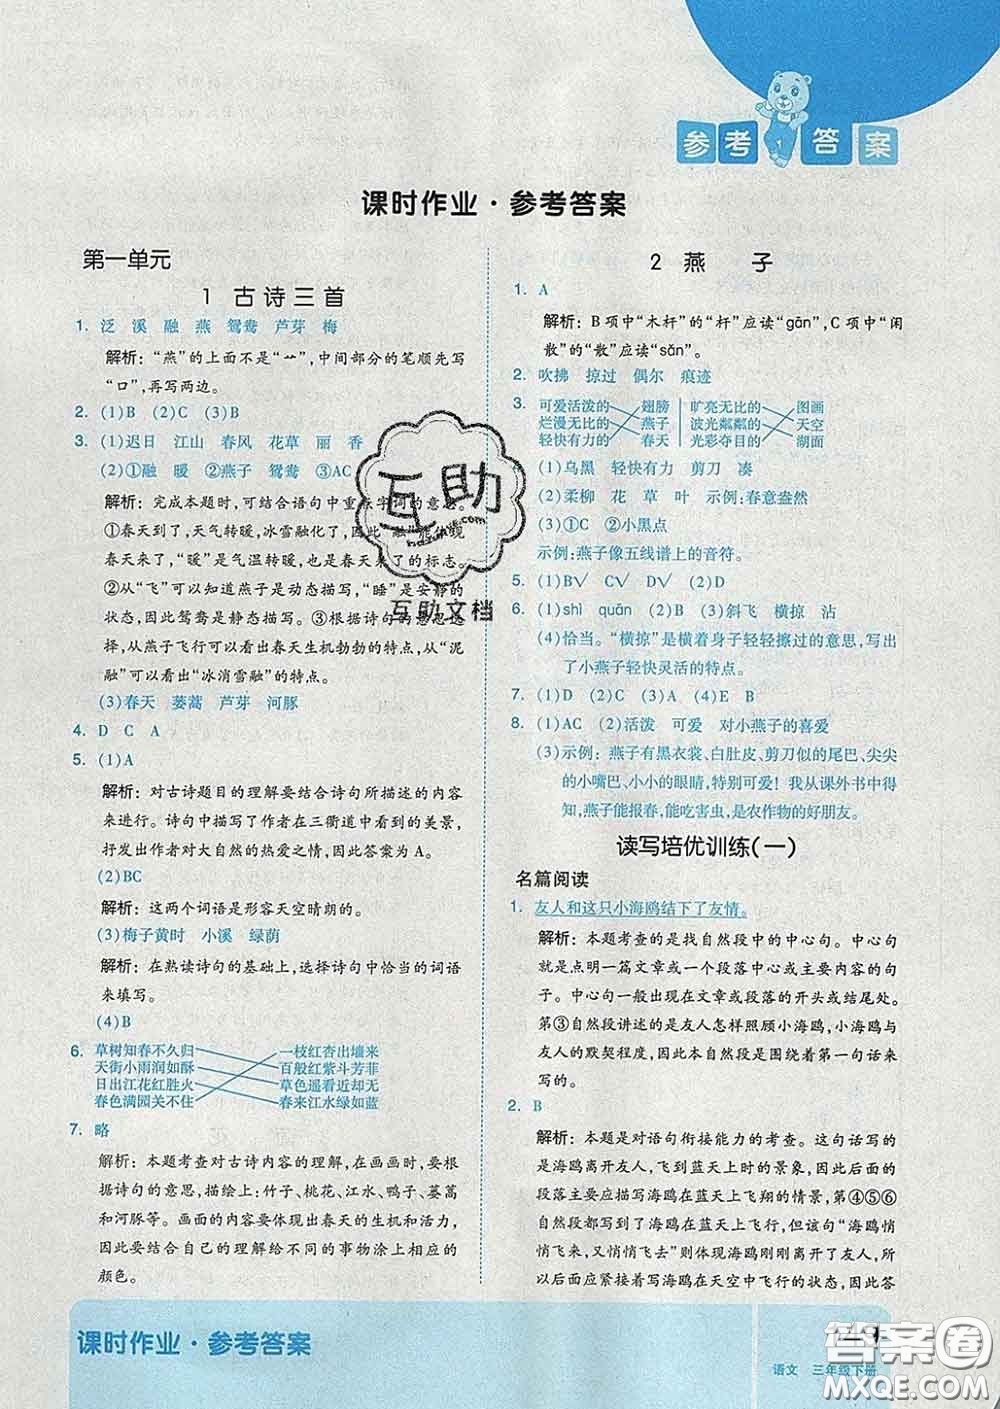 参考答案
课时作业·参考答案
第一单元
1 古诗三首
1. 泛 溪 融 燕 鸳鸯 芦芽 梅
解析：“燕”的上面不是“艹”，中间部分的笔顺先写
“口”，再写两边。
2. (1)B (2)C (3)B
3. (1)迟日 江山 春风 花草 丽 香
(2)①融 暖 ②燕子 鸳鸯 ③AC
解析：完成本题时，可结合语句中重点字词的意思。
①春天到了，天气转暖，冰雪融化了，因此“融”能体现
春天来了，“暖”是气温转暖，也是春天来了的标志。
②从“飞”可以知道燕子是动态描写，“睡”是安静的
状态，因此鸳鸯是静态描写。③根据诗句的意思选
择，从燕子飞行可以看出春天生机勃勃的特点，从“泥
融”可以看出“冰消雪融”的特点。
(3)春天 蒌蒿 芦芽 河豚
4. D C A
5. (1)A
解析：对古诗题目的理解要结合诗句所描述的内容
来理解。诗句中描写了作者在三衢道中看到的美景，
抒发出作者对大自然的热爱之情，因此答案为A。
(2)BC
解析：这两个词语是形容天空晴朗的。
(3)梅子黄时 小溪 绿荫
解析：在熟读诗句的基础上，选择诗句中恰当的词语
来填写。
(4)B
6. 草树知春不久归 一枝红杏出墙来
天街小雨润如酥 百般红紫斗芳菲
日出江花红胜火 草色遥看近却无
春色满园关不住 春来江水绿如蓝
7. 略
解析：本题考查对古诗内容的理解，在画画时，要根
据诗句的意思，描绘上：竹子、桃花、江水、鸭子、蒌蒿
和河豚等。画面的内容要体现出春天的生机和活力，
因此要结合自己的理解给不同的事物涂上相应的
颜色。
2 燕 子
1. A
解析：B项中“木杆”的“杆”应读“gān”，C项中“闲
散”的“散”应读“sǎn”。
2. 吹拂 掠过 偶尔 痕迹
3. 可爱活泼的 翅膀 旷亮无比的 图画
烂漫无比的 燕子 波光粼粼的 天空
轻快有力的 春天 光彩夺目的 湖面
(1)乌黑 轻快有力 剪刀 凑
(2)柔柳 花 草 叶 示例：春意盎然
(3)①C ②小黑点
示例：燕子像五线谱上的音符。
5. (1)B√ (2)C√ (2)D
6. (1)shì quān (2)B (3)斜飞 横掠 沾
(4)恰当。“横掠”是横着身子轻轻擦过的意思，写出
了小燕子轻快灵活的特点。
7. (1)D (2)C (3)A (4)E B
8. (1)AC (2)活泼 可爱 对小燕子的喜爱
(3)示例：燕子有黑衣裳、白肚皮、剪刀似的尾巴、尖尖
的小嘴巴、小小的眼睛，特别可爱！我从课外书中得
知，燕子能报春，能吃害虫，是农作物的好朋友。
读写培优训练(一)
名篇阅读
1. 友人和这只小海鸥结下了友情。
解析：本题考查的是找自然段中的中心句。中心句
就是点明一篇文章或一个段落中心或主要内容的句
子。中心句一般出现在文章或段落的开头或结尾处。
第③自然段讲述的是友人怎样照顾小海鸥，小海鸥与
友人的默契程度，因此本自然段是围绕着第一句话来
写的。
2. B
解析：本题是对语句衔接能力的考查。这句话写的
是海鸥离开友人，飞到蓝天上时的景象，因此后面的
段落主要应描写海鸥在蓝天上飞翔的情景，第④⑤⑥
自然段都写到了海鸥在蓝天上飞行，但该句“海鸥悄
悄飞来，又悄悄飞去”反映海鸥刚刚离开了友人，所
以后面应紧接着写海鸥在天空中飞行的状态，因此答
课时作业·参考答案
语文 三年级下册
互助
互助文档
答案圈
MXQE.COM